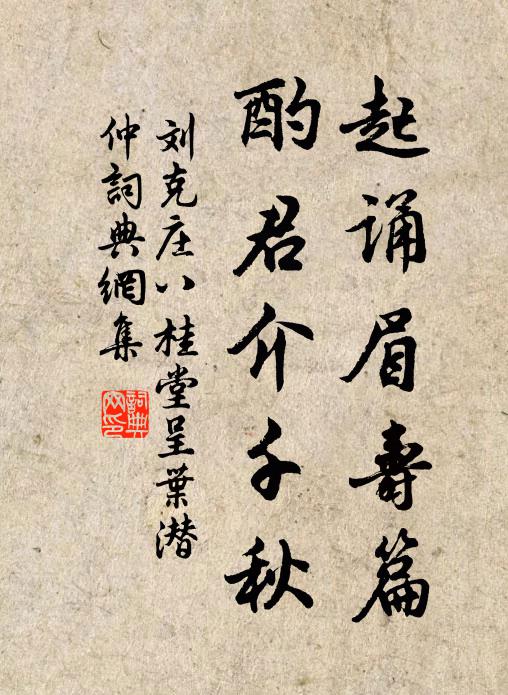 起诵眉寿篇
酌君介千秋
刘克庄八桂堂呈葉潜
仲詞典網集
詞典
网印